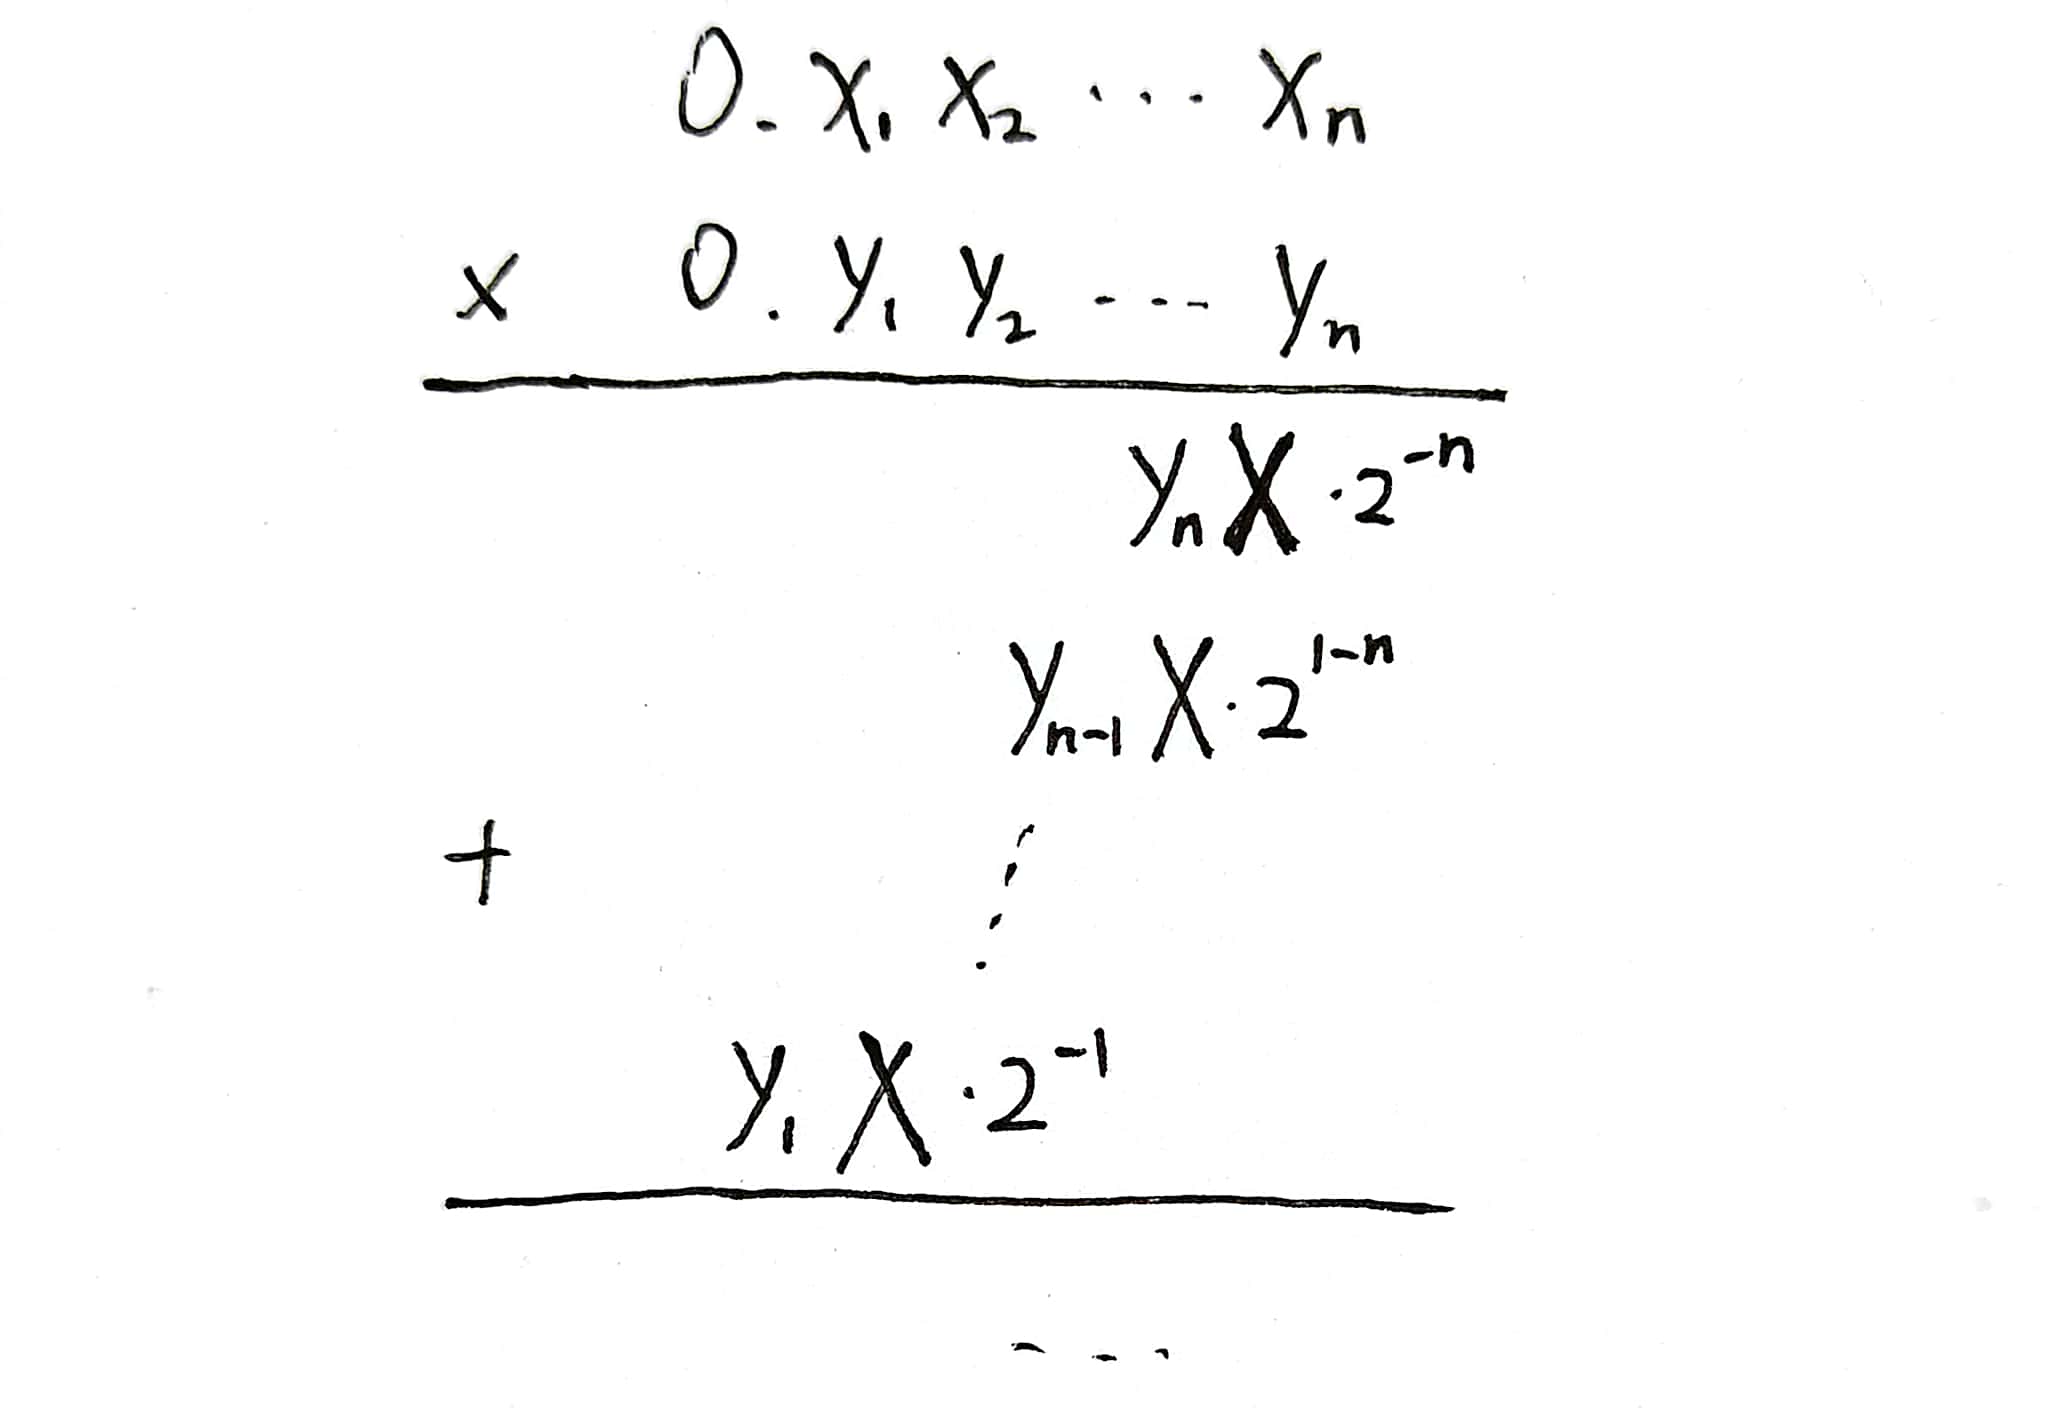 0.X₁ X₂ ... Xₙ
× 0.Y₁ Y₂ --- Yₙ
YₙX·2⁻ⁿ
Yₙ₋₁X·2¹⁻ⁿ
+
Y₁X·2⁻¹
...